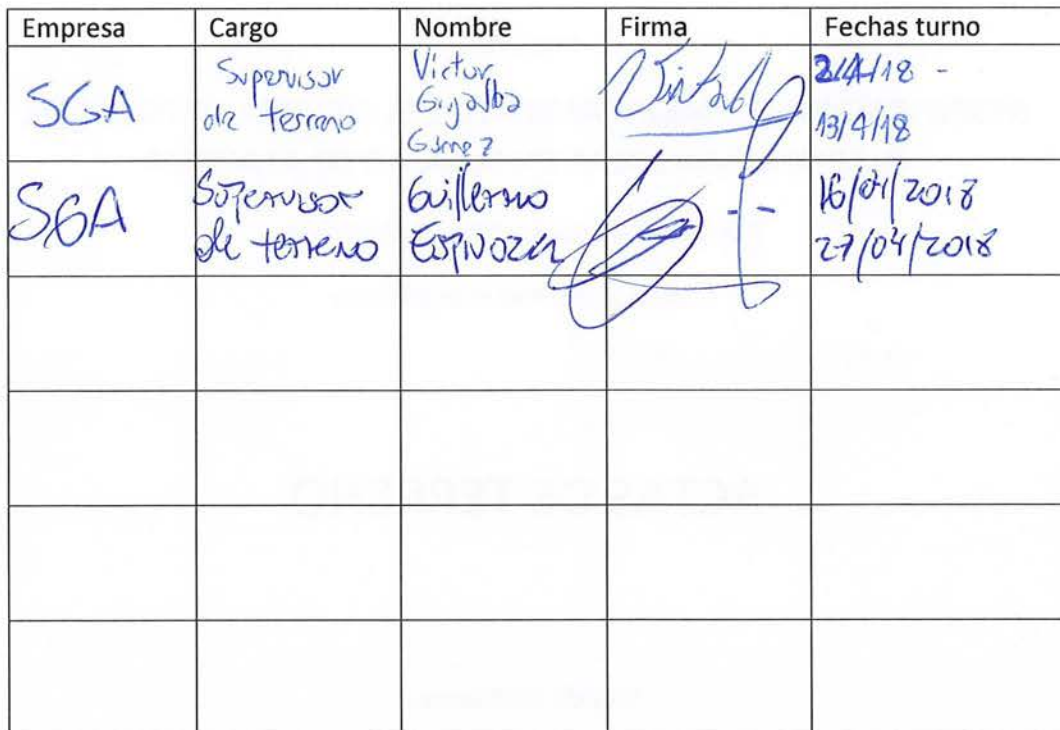 Empresa Cargo Nombre Firma Fechas turno
SGA Supervisor de terreno Victor Grijalba Gómez 2/4/18 - 13/4/18
SGA Supervisor de terreno Guillermo Espinoza -- 16/04/2018 27/04/2018